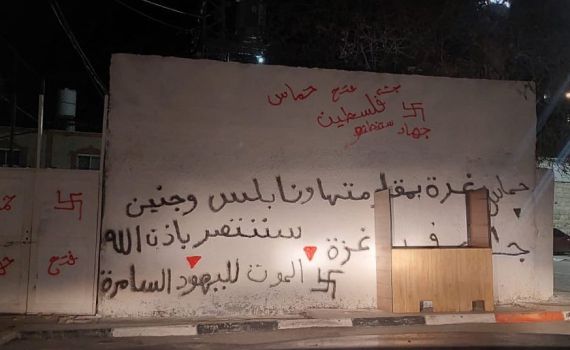 حماس فتح
فلسطين
جهاد
حماس غزة بمقاومتها ونابلس وجنين
ستنتصر باذن الله
غزة
الموت لليهود السامرة
فتح